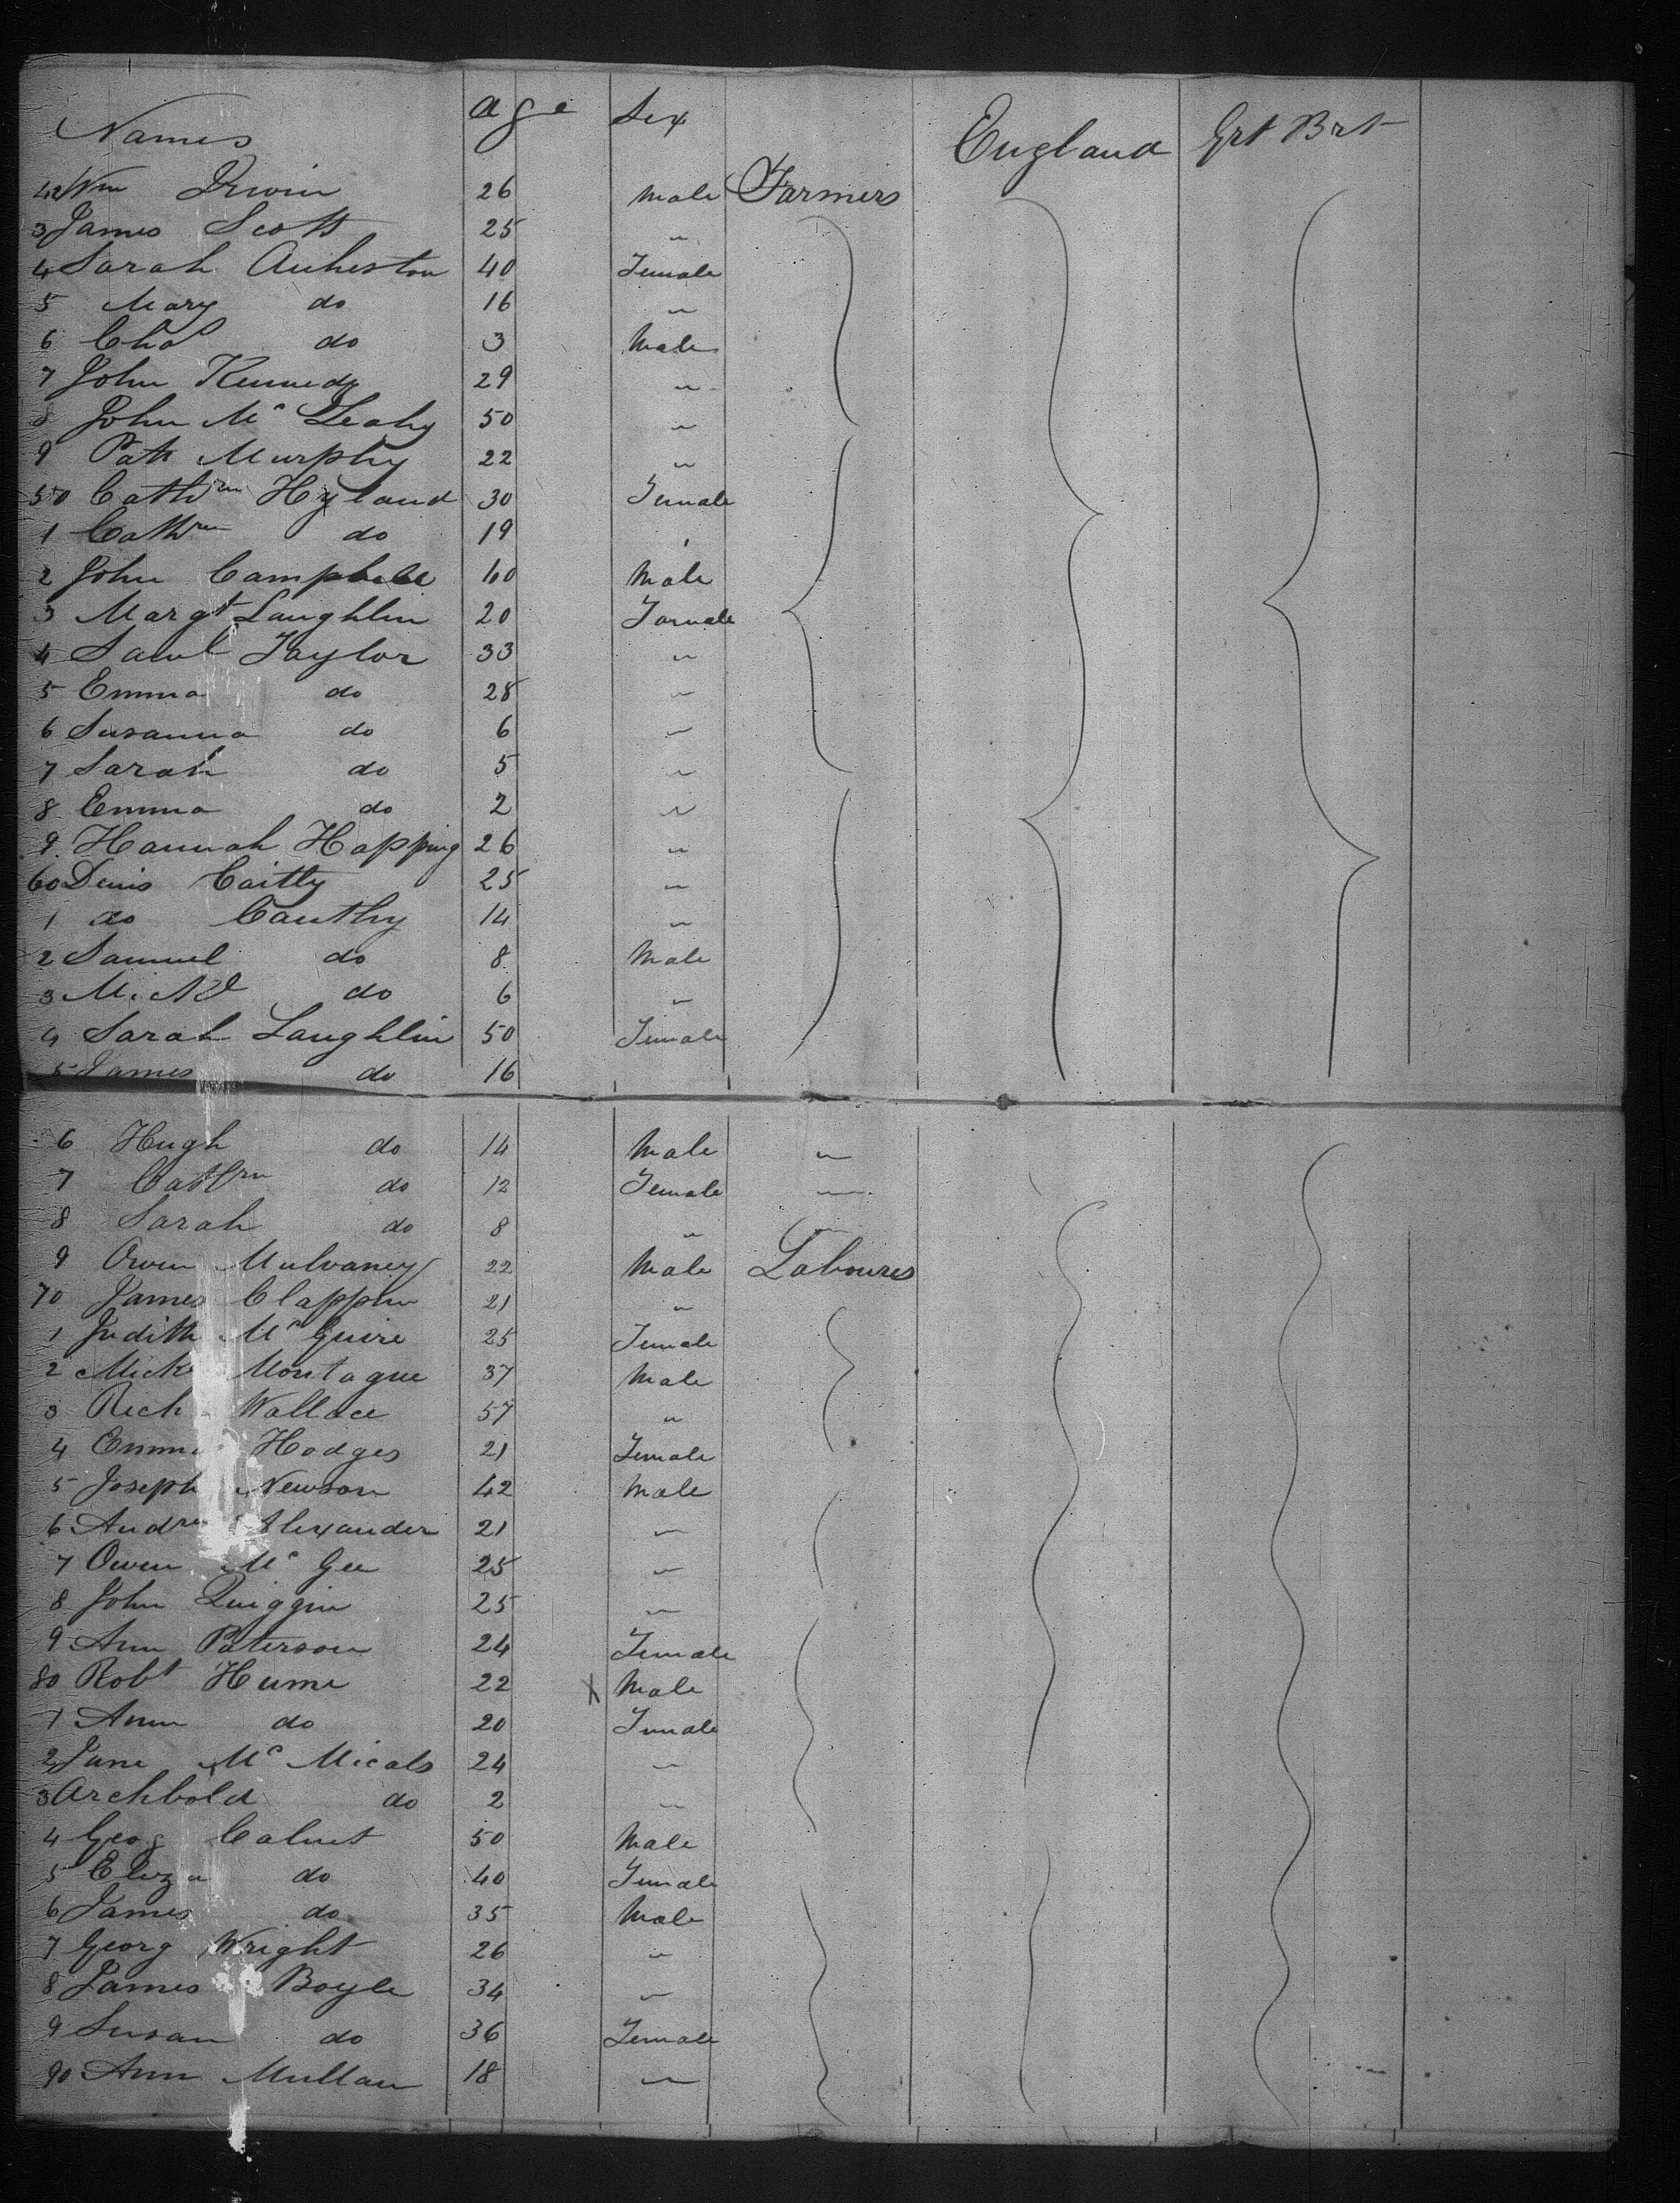 Names age Sex England Grt Brt
42 Wm Irwin 26 Male Farmers
3 James Scott 25 "
4 Sarah Auheston 40 Female
5 Mary do 16 "
6 Chas do 3 Male
7 John Kennedy 29 "
8 John Mc Leahy 50 "
9 Patk Murphy 22 "
50 Cathrn Hyland 30 Female
1 Cathrn do 19 "
2 John Campbell 40 Male
3 Margt Laughlin 20 Female
4 Saml Taylor 33 "
5 Emma do 28 "
6 Susanna do 6 "
7 Sarah do 5 "
8 Emma do 2 "
9 Hannah Happing 26 "
60 Denis Caitty 25 "
1 do Cauthy 14 "
2 Samuel do 8 Male
3 Michl do 6 "
4 Sarah Laughlin 50 Female
5 James do 16
6 Hugh do 14 Male "
7 Cathrn do 12 Female "
8 Sarah do 8 " "
9 Owen Mulvaney 22 Male Laboures
70 James Clappin 21 "
1 Judith Mc Guire 25 Female
2 Mich Montague 37 Male
3 Rich Wallace 57 "
4 Emma Hodges 21 Female
5 Joseph Newson 42 Male
6 Andrew Alexander 21 "
7 Owen Mc Gee 25 "
8 John Quiggin 25 "
9 Ann Paterson 24 Female
80 Robt Hume 22 x Male
1 Ann do 20 Female
2 Jane Mc Micals 24 "
3 Archbold do 2 "
4 Geog Calvet 50 Male
5 Eliza do 40 Female
6 James do 35 Male
7 Georg Wright 26 "
8 James Boyle 34 "
9 Susan do 36 Female
90 Ann Mullan 18 "